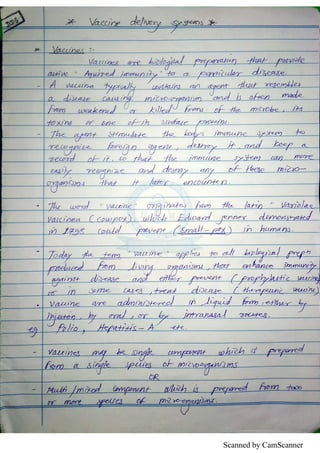 * Vaccine delivery systems *
* Vaccines :-
Vaccines are biological preparation that provide
active " Aquired immunity " to a particular disease.
- A vaccine typically contains an agent that resembles
a disease causing micro-organism and is often made
from weakened or killed forms of the microbe, its
toxins or one of its surface proteins.
- The agent stimulate the body's immune system to
recognize foreign agents, destroy it, and keep a
record of it, so that the immune system can more
easily recognize and destroy any of these micro-
organisms that it later encounters.
- The word "vaccine" originates from the latin "Variolae
vaccinea (Cowpox), which Edward jenner demonstrated
in 1798 could prevent (Small-pox) in humans.
- Today the term "vaccine" applies to all biological prepn
produced from living organisms, that enhance immunity
against disease and either prevent (prophylactic vaccine)
or in some cases, treat disease (therapeutic vaccine)
- Vaccine are administered in liquid form, either by
injection, by oral, or by intranasal routes.
eg. Polio, Hepatitis-A etc.
- Vaccines may be single component which is prepared
from a single species of microorganisms
OR
- Multi/mixed component which is prepared from two
or more species of microorganisms.
Scanned by CamScanner